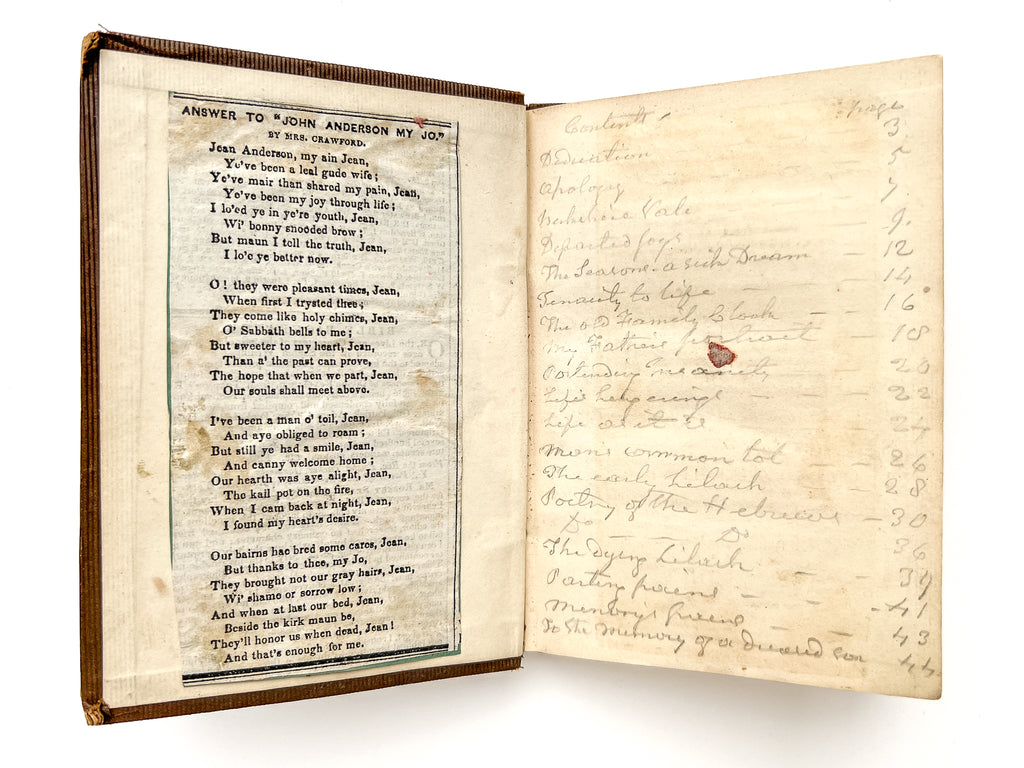 ANSWER TO "JOHN ANDERSON MY JO."
BY MRS. CRAWFORD.
Jean Anderson, my ain Jean,
Ye've been a leal gude wife;
Ye've mair than shared my pain, Jean,
Ye've been my joy through life;
I lo'ed ye in ye're youth, Jean,
Wi' bonny snooded brow;
But maun I tell the truth, Jean,
I lo'e ye better now.
O! they were pleasant times, Jean,
When first I trysted thee;
They come like holy chimes, Jean,
O' Sabbath bells to me;
But sweeter to my heart, Jean,
Than a' the past can prove,
The hope that when we part, Jean,
Our souls shall meet above.
I've been a man o' toil, Jean,
And aye obliged to roam;
But still ye had a smile, Jean,
And canny welcome home;
Our hearth was aye alight, Jean,
The kail pot on the fire,
When I cam back at night, Jean,
I found my heart's desire.
Our bairns hae bred some cares, Jean,
But thanks to thee, my Jo,
They brought not our gray hairs, Jean,
Wi' shame or sorrow low;
And when at last our bed, Jean,
Beside the kirk maun be,
They'll honor us when dead, Jean!
And that's enough for me.
Contents page
Dedication 3.
Apology 5
Vale 7.
Departed joys 9.
The Seasons. a sick Dream 12
Tenacity to life 14
The old Family Clock 16
My Fathers portrait 18
Portending 20
Life's lingerings 22
Life as it is 24
Mans common lot 26
The early Lilach 28
Poetry of the Hebrews 30
Do Do 36
The dying Lilach 39
Parting friend 41
Memory's friend 43
To the memory of a dear son 44